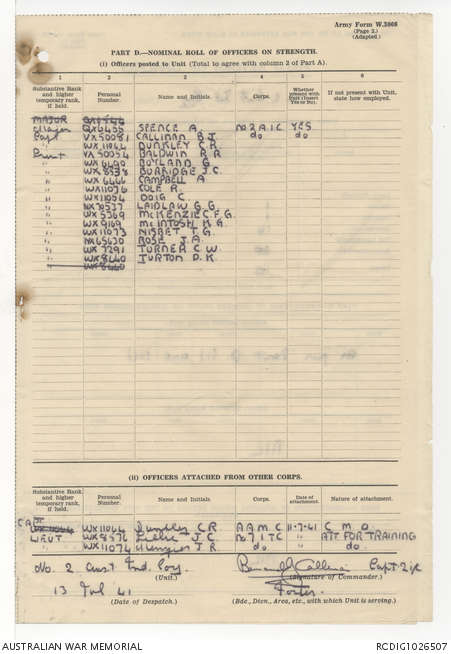 Army Form W.3008
(Page 2.)
(Adapted.)
PART D.—NOMINAL ROLL OF OFFICERS ON STRENGTH.
(i) Officers posted to Unit (Total to agree with column 2 of Part A).
1 2 3 4 5 6
Substantive Rank and higher temporary rank, if held. Personal Number. Name and Initials. Corps. Whether present with Unit (Insert Yes or No). If not present with Unit, state how employed.
MAJOR
Major QX6455 SPENCE A. No 2 A I C YES
Capt VX50081 CALLINAN B.J. do do
" WX11066 DUNKLEY C.R.
Lieut VX50054 BALDWIN R.R.
" WX6490 BOYLAND G.
" BURRIDGE J.C.
" WX6466 CAMPBELL A
" WX11076 COLE R.
" WX11054 DOIG C.
" NX70537 LAIDLAW G.G.
" WX5369 McKENZIE C.F.G.
" WX9169 McINTOSH K.G.
" WX11073 NISBET T.G.
" NX65630 ROSE J.A.
" WX7291 TURNER C.W.
" WX8640 TURTON D.K.
" WX8640
(ii) OFFICERS ATTACHED FROM OTHER CORPS.
Substantive Rank and higher temporary rank, if held. Personal Number. Name and Initials. Corps. Date of attachment. Nature of attachment.
CAPT WX11066 Dunkley C R A A M C 11-7-41 C M O
LIEUT WX8576 J C No 7 I T C " ATT FOR TRAINING
" WX11074 J R do " do.
No. 2 Aust Ind Coy.
(Unit.)
Bernard J Callinan Capt 2ic
(Signature of Commander.)
13 Jul 41
(Date of Despatch.)
(Bde., Divn., Area, etc., with which Unit is serving.)
AUSTRALIAN WAR MEMORIAL RCDIG1026507